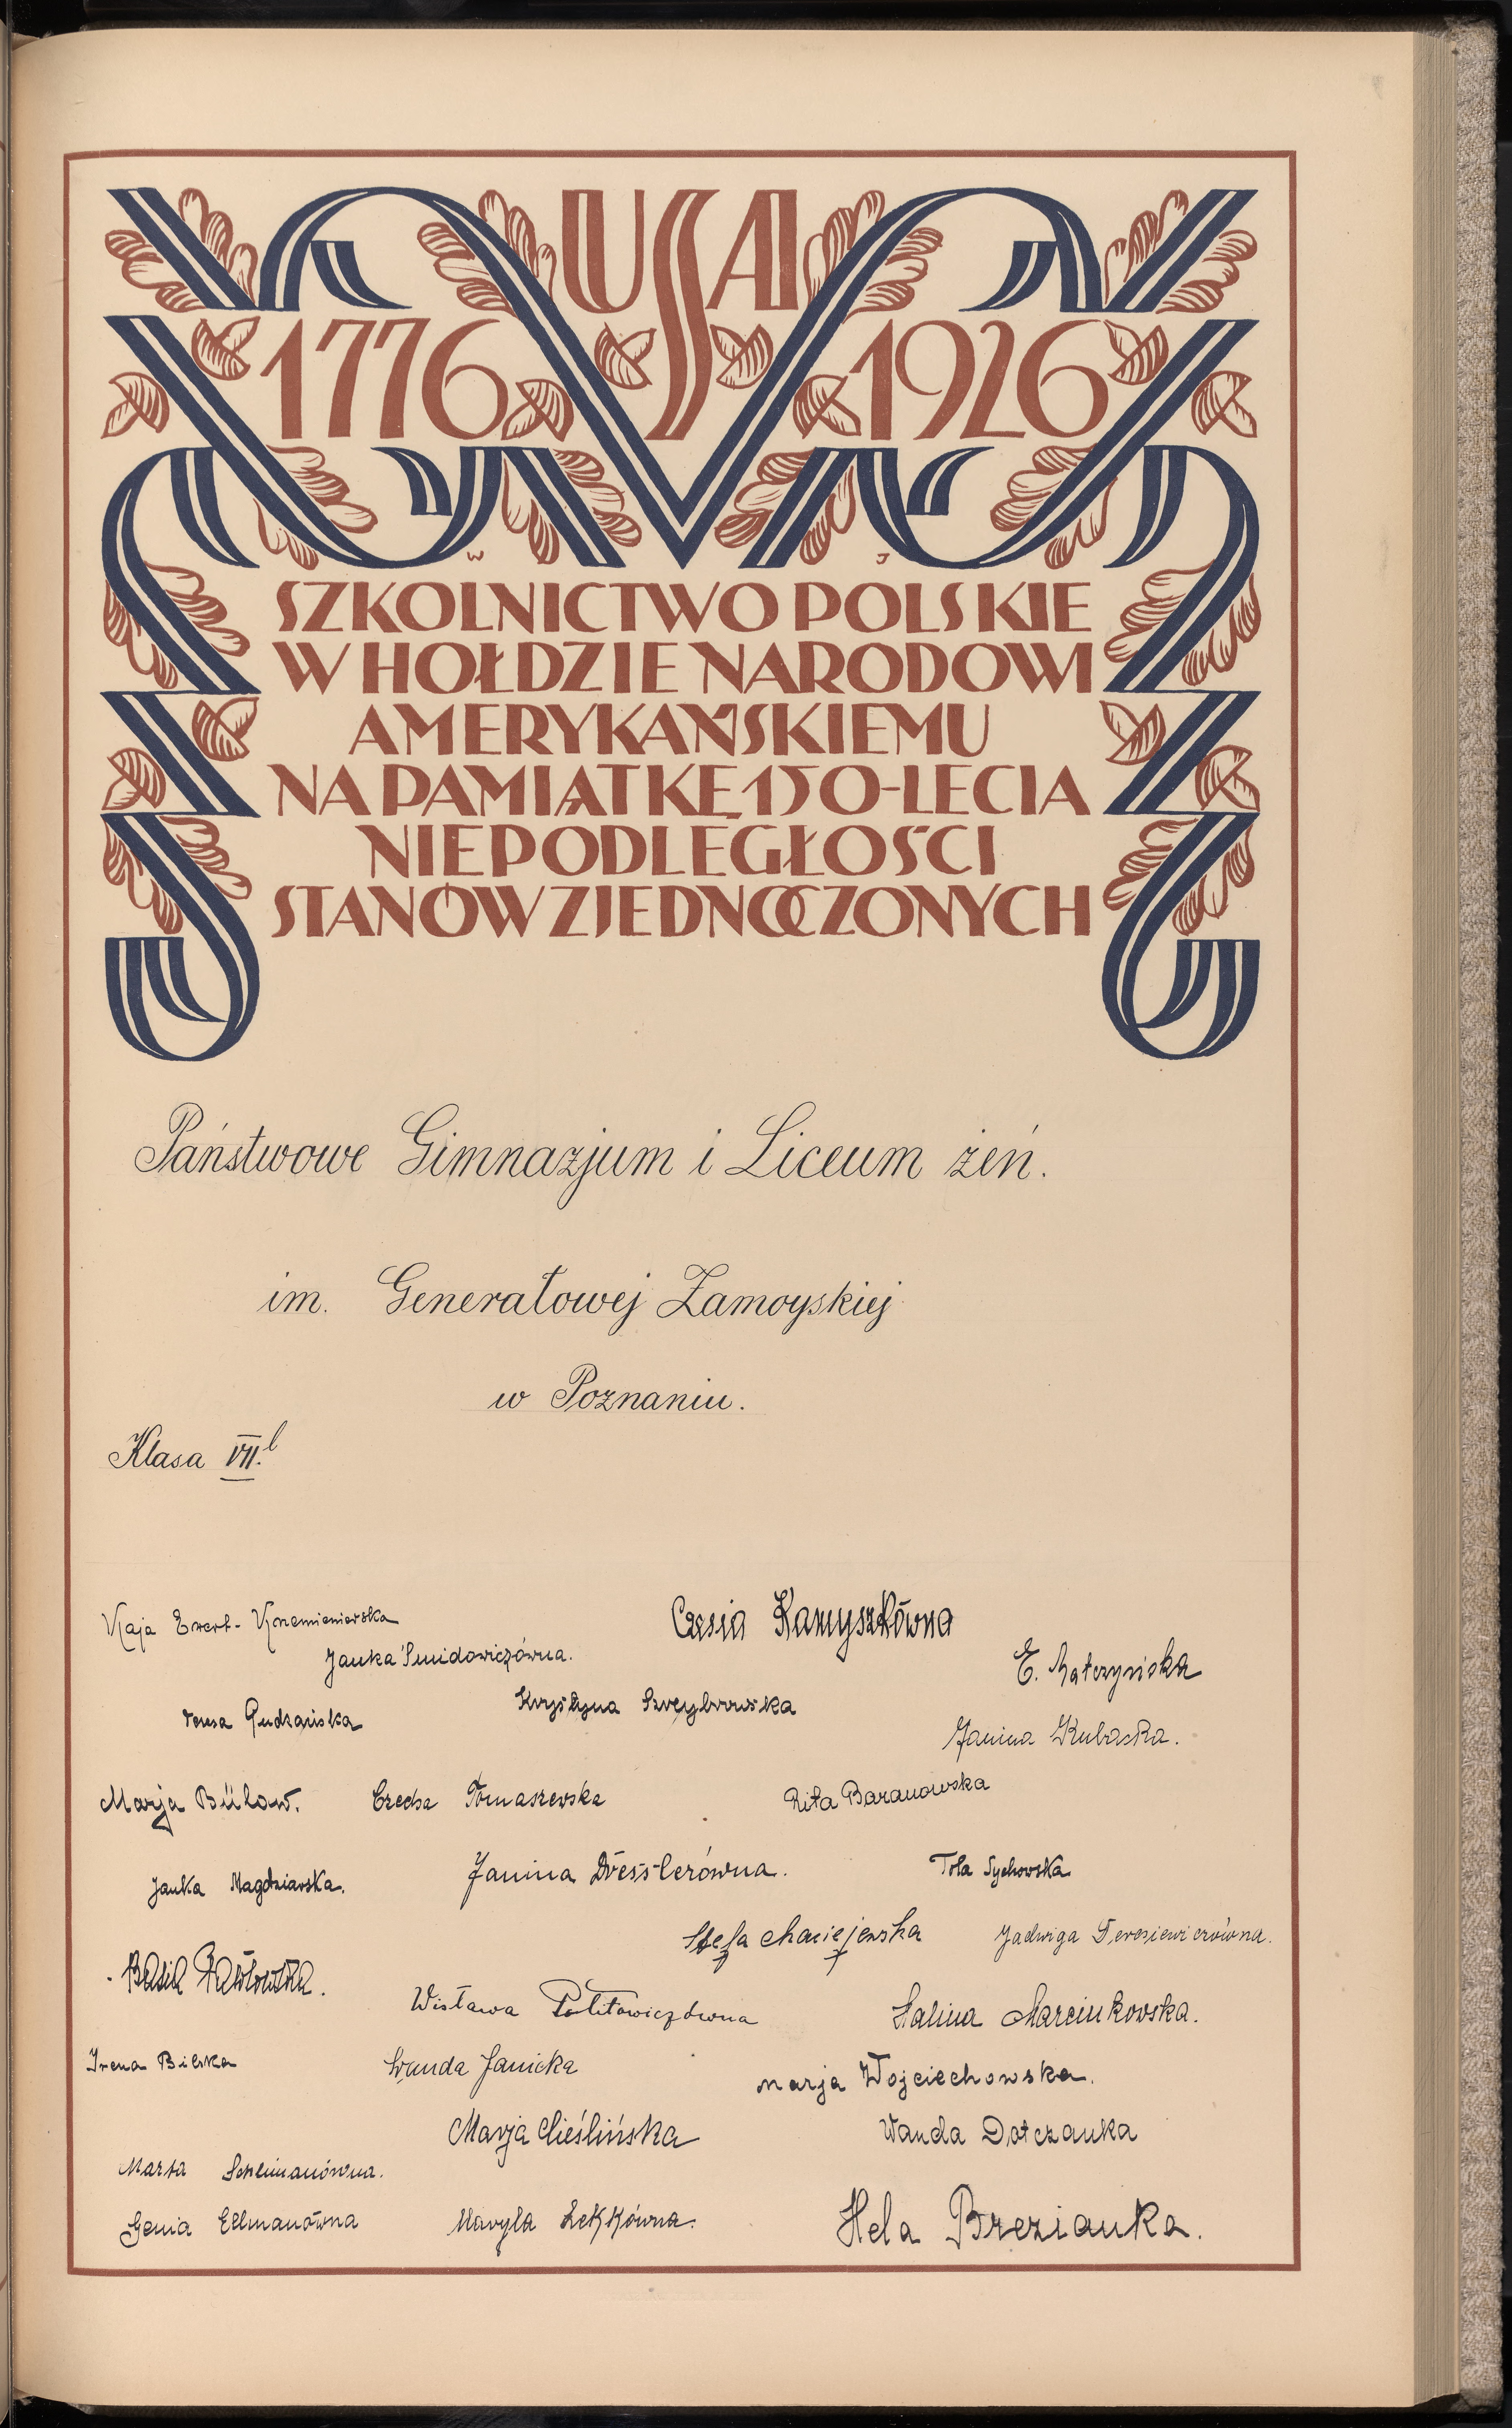 USA
1776 1926
W J
SZKOLNICTWO POLSKIE
W HOŁDZIE NARODOWI
AMERYKAŃSKIEMU
NA PAMIĄTKĘ 150-LECIA
NIEPODLEGŁOŚCI
STANÓW ZJEDNOCZONYCH
Państwowe Gimnazjum i Liceum żeń.
im. Generałowej Zamoyskiej
w Poznaniu.
Klasa VII.l
Kaja Ewert-Krzemieniewska
Czesia Kamyszkówna
Janka Śmidowiczówna.
E. Matczyńska
Teresa Gudzańska
Krystyna Szreybrowska
Janina Kubacka.
Marja Bülow.
Czecha Tomaszewska
Rita Baranowska
Janka Nagdziarska.
Janina Dresslerówna.
Tola Sychowska
Stefa Maciejewska
Jadwiga Teresiewiczówna.
Basia Pawłowska.
Wisława Politowiczówna
Halina Marcinkowska.
Irena Bilska
Wanda Janicka
Marja Wojciechowska.
Marja Cieślińska
Wanda Dotczanka
Marta Schlimanówna.
Genia Ellmanówna
Maryla Lekkówna.
Hela Brezianka.